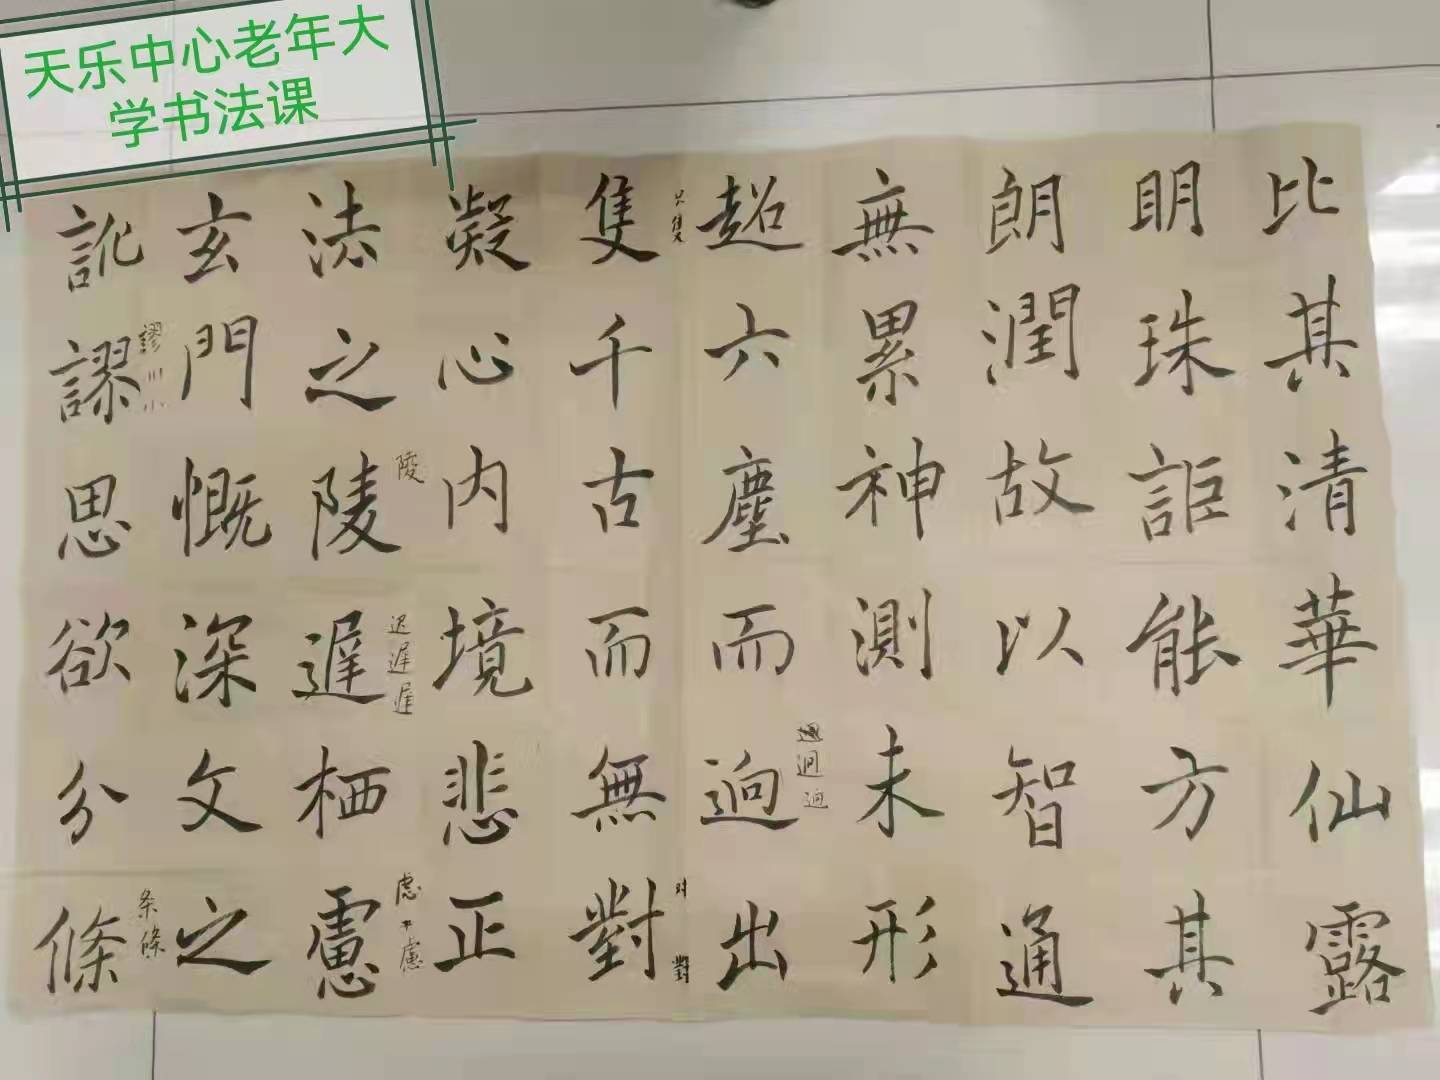 天乐中心老年大
学书法课
比其清華仙露
明珠詎能方其
朗潤故以智通
無累神測未形
超六塵而迥出
隻千古而無對
凝心內境悲正
法之陵遲栖慮
玄門慨深文之
訛謬思欲分條